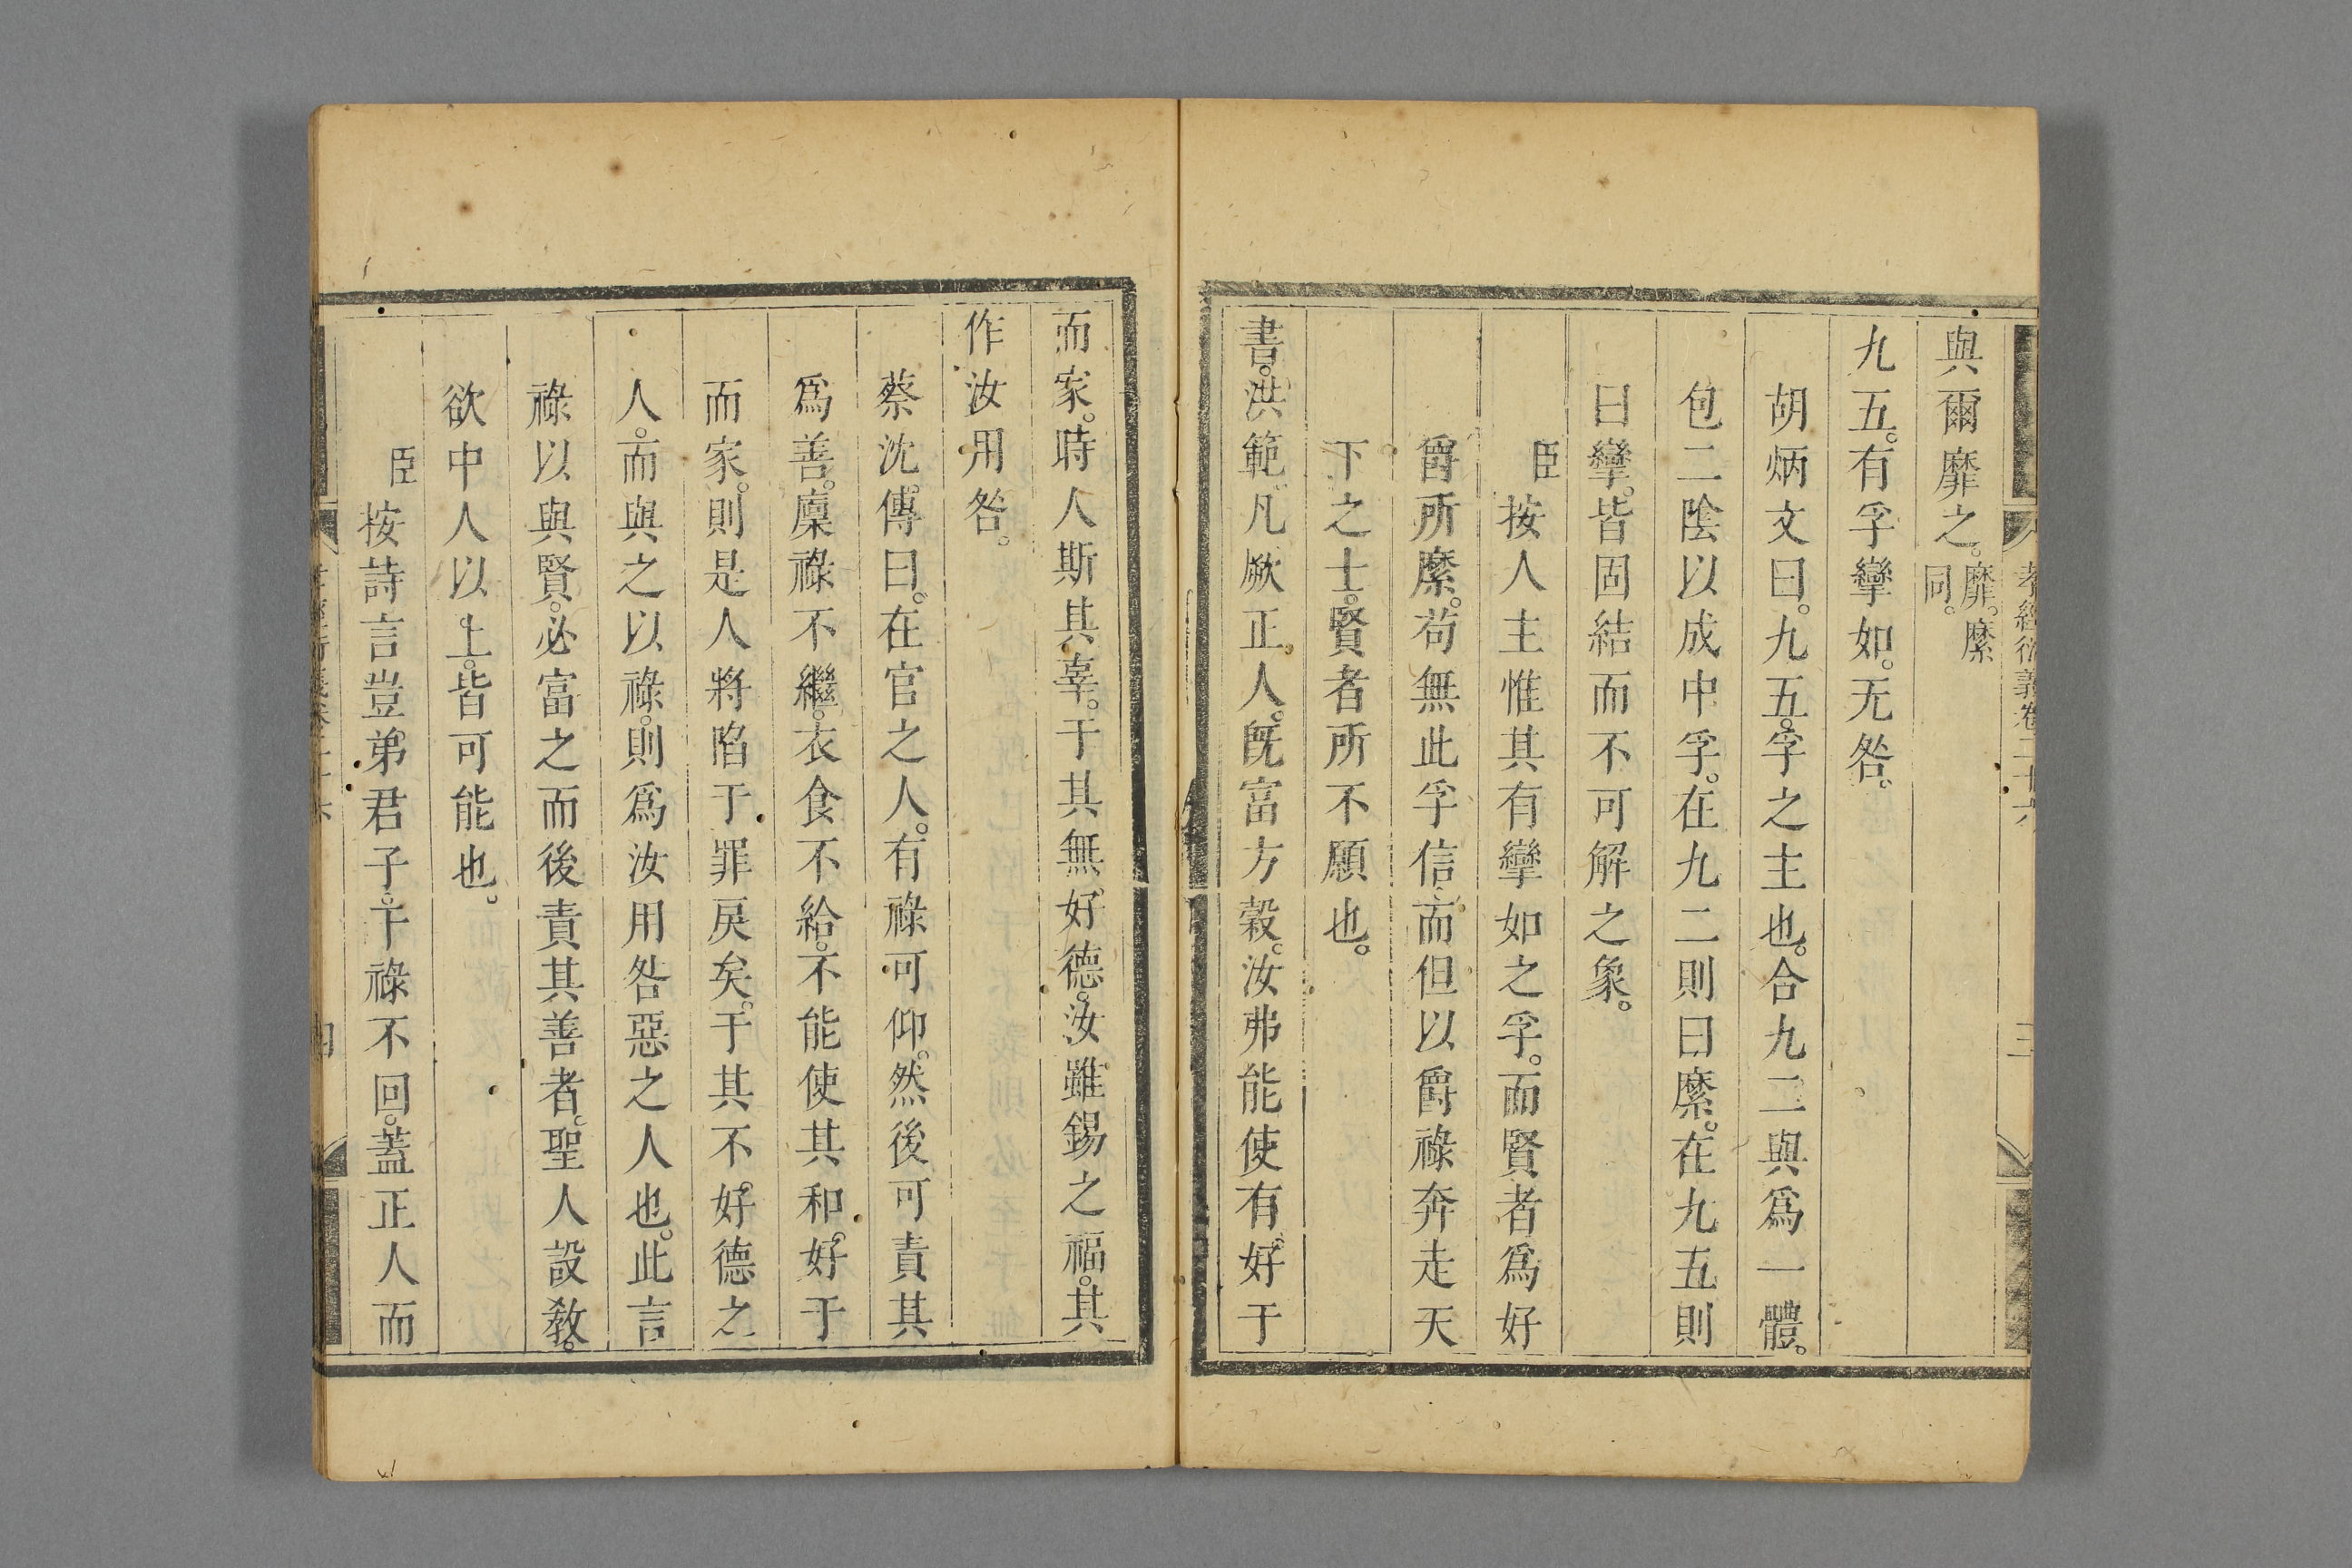 孝經衍義卷二十六
三
與爾靡之。靡。縻
同。
九五。有孚攣如。无咎。
胡炳文曰。九五。孚之主也。合九二與爲一體。
包二陰以成中孚。在九二則曰縻。在九五則
曰攣。皆固結而不可解之象。
臣按人主惟其有攣如之孚。而賢者爲好
爵所縻。苟無此孚信。而但以爵祿奔走天
下之士。賢者所不願也。
書。洪範。凡厥正人。旣富方穀。汝弗能使有好于
而家。時人斯其辜。于其無好德。汝雖錫之福。其
作汝用咎。
蔡沈。傳曰。在官之人。有祿可仰。然後可責其
爲善。廩祿不繼。衣食不給。不能使其和。好于
而家。則是人將陷于罪戾矣。于其不好德之
人。而與之以祿。則爲汝用咎惡之人也。此言
祿以與賢。必富之而後責其善者。聖人設教。
欲中人以上。皆可能也。
臣按詩言豈弟君子。干祿不回。蓋正人而
四